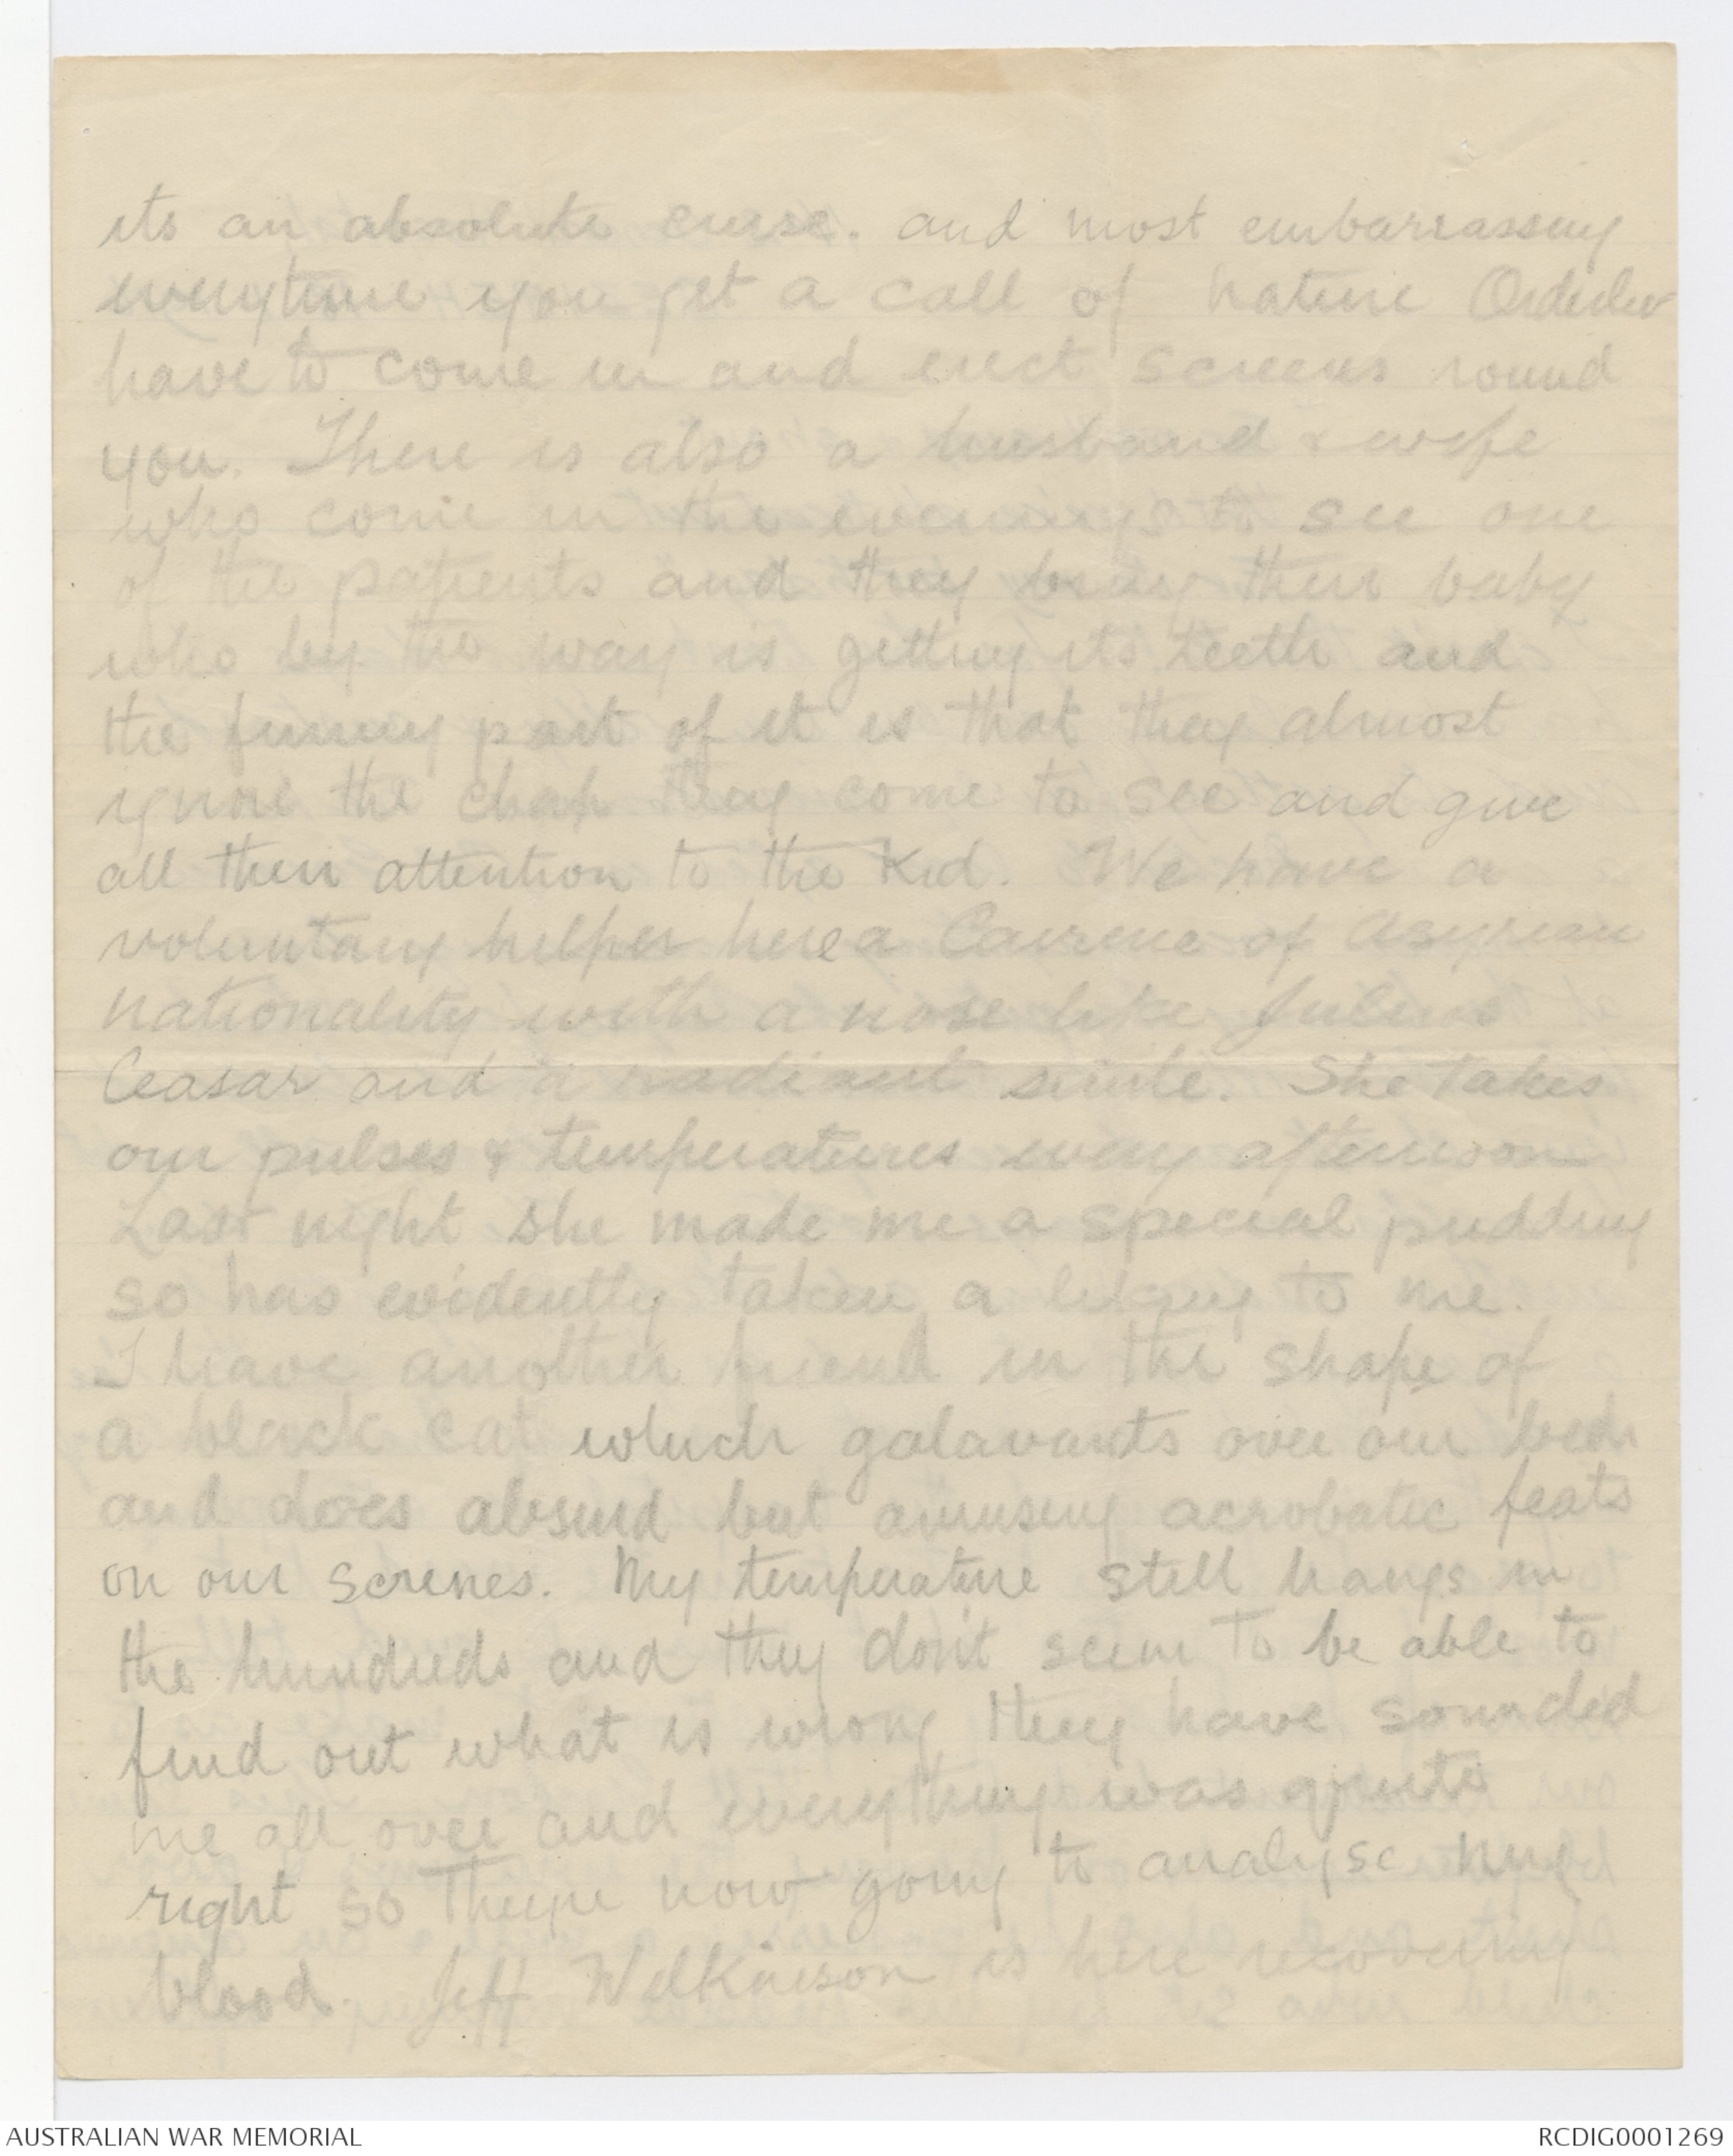 its an absolute curse. and most embarrassing
everytime you get a call of nature
have to come in and erect screens round
you. There is also a husband & wife
who come in the evenings to see one
of the patients and they bring their baby
who by the way is getting its teeth and
the funny part of it is that they almost
ignore the chap they come to see and give
all their attention to the Kid. We have a
voluntary helper here a Cairene of Asyrian
nationality with a nose like Julius
Ceasar and a radiant smile. She takes
our pulses & temperatures every afternoon
Last night she made me a special pudding
so has evidently taken a liking to me.
I have another friend in the shape of
a black cat which galavants over our beds
and does absurd but amusing acrobatic feats
on our screnes. My temperature still hangs in
the hundreds and they don't seem to be able to
find out what is wrong they have sounded
me all over and everything was quite
right so theyre now going to analyse my
blood. Jeff Wilkinson is here recovering
AUSTRALIAN WAR MEMORIAL
RCDIG0001269